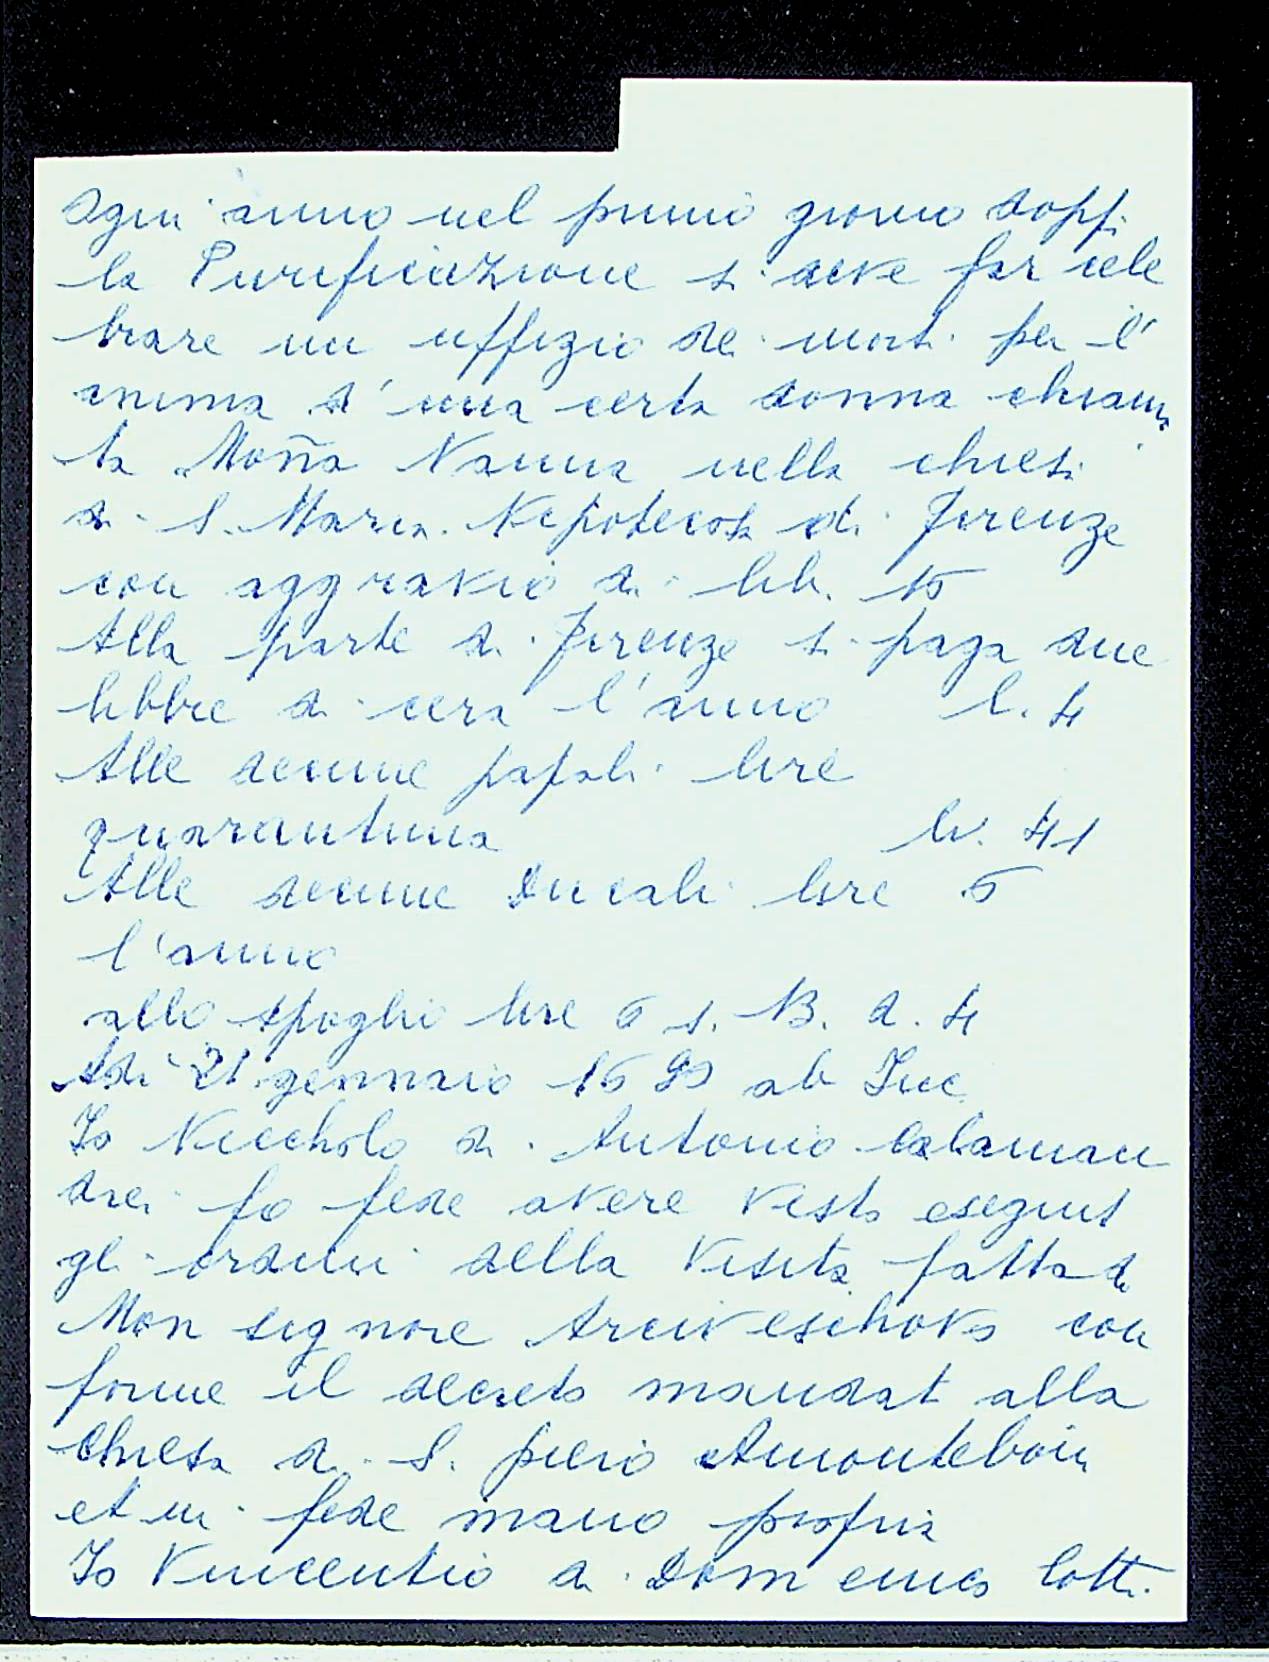 Ogni anno nel primo giorno dopp.
la Purificazione si deve far cele
brare un uffizio de morti per l'
anima d'una certa donna chiama
ta Moña Nanna nella chiesa
di S. Maria Nepotecosa di Firenze
con aggravio di lib. 15
Alla parte di Firenze si paga due
libbre di cera l'anno l. 4
Alle decime papali lire
quarantuna lir. 41
Alle decime Ducali lire 5
l'anno
allo spoglio lire 6 s. 13. d. 4
Adi 21 gennaio 1699 ab Inc
Io Niccholo di Antonio Calaman
drei fo fede avere visto eseguit
gli ordini della Visita fatta da
Mon signore Arciveschovo con
forme il decreto mandat alla
chiesa di S. piero Amonteboin
et in fede mano propria
Io Vincentio di Domenico Lotti